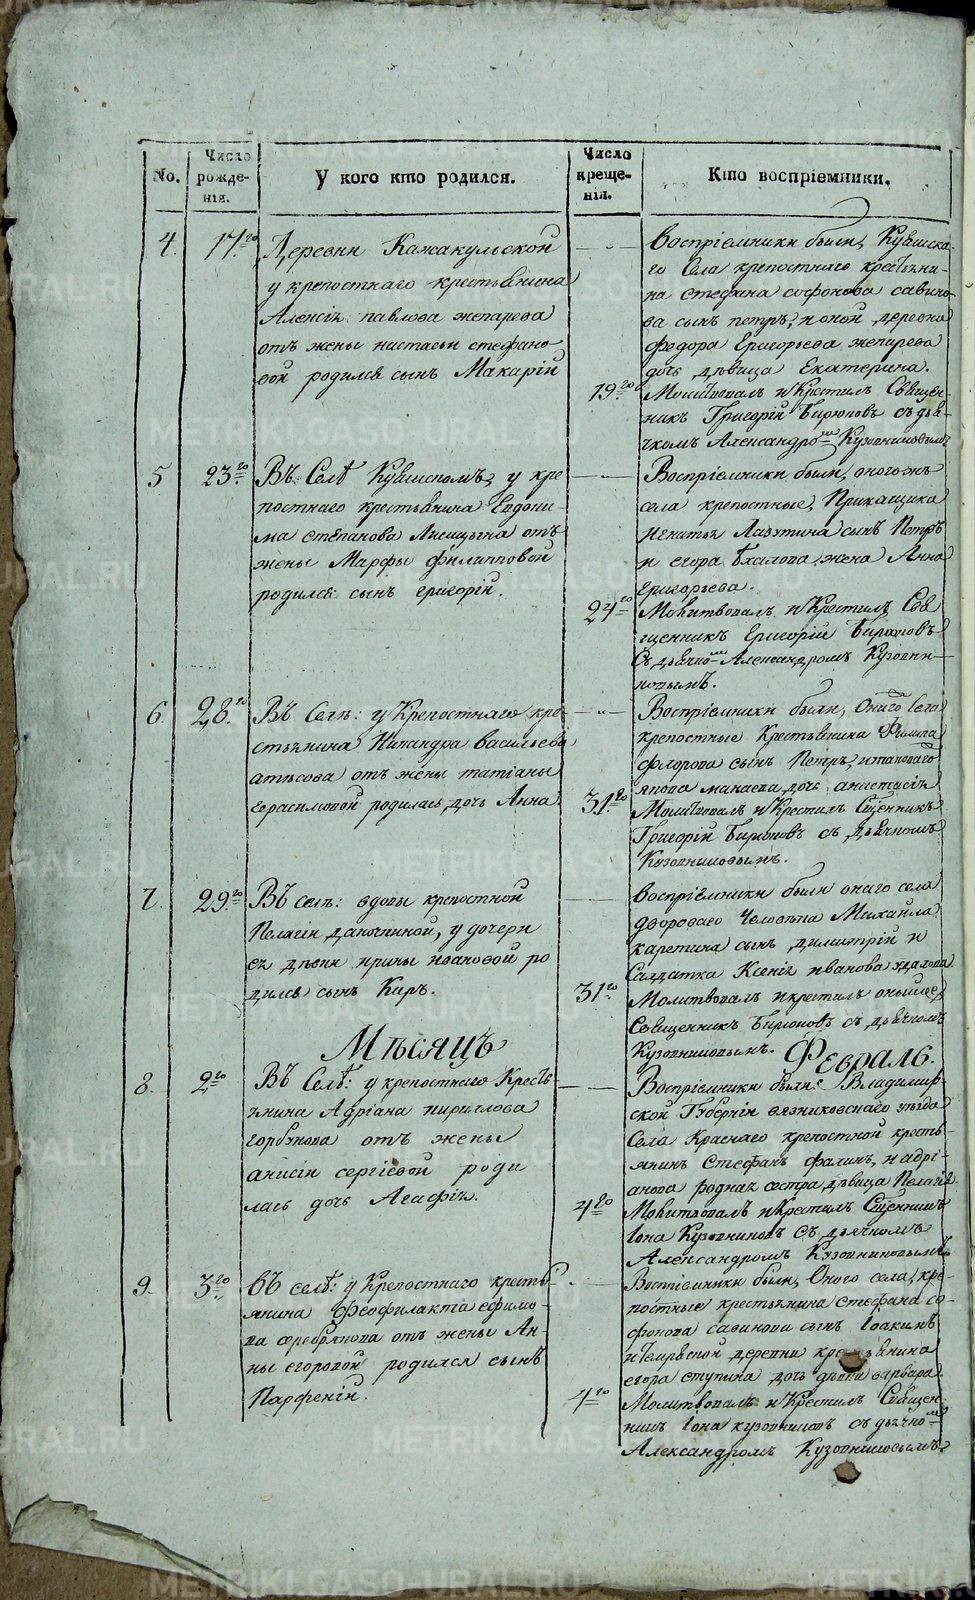 No.
Число рожденія.
У кого кто родился.
Число крещенія.
Кто воспріемники.
4.
17.го
Деревни Кажакульской
у крепостнаго крестьянина
Алексія павлова жепарева
отъ жены настасьи стефано-
вой родился сынъ Макарій
воспріемники были,
го Села крепостнаго крестьяни-
на стефана софонова савино-
ва сынъ петръ, и оной деревни
федора Григорьева жепарева
дочь дѣвица Екатерина.
19.го
Молитвовалъ и Крестилъ Священ-
никъ Григорій Бирюковъ съ дья-
чкомъ Александромъ
5
23.го
Въ Селѣ у кре
постнаго крестьянина Евдоки-
ма степанова отъ
жены Марфы филипповой
родился сынъ григорій.
Воспріемники были, оного жъ
села крепостные, Прикащика
Игнатья Лазутина сынъ Петръ
и егора жена Анна
григорьева.
24го
Молитвовалъ и Крестилъ Свя
щенникъ Григорій Бирюковъ
Съ дьячкомъ Александромъ Кузовни-
ковымъ.
6.
28.го
Въ Селѣ: у Крепостнаго кре-
стьянина Никандра васильева
отъ жены татіаны
герасимовой родилась дочь Анна
Воспріемники были, Онаго Села
крепостные Крестьянина Филипа
флорова сынъ Петръ, и таковаго
якова дочь анастасія
31го
Молитвовалъ и Крестилъ Священникъ
Григорій Бирюковъ съ дьячкомъ
Кузовниковымъ.
7.
29.го
Въ селѣ: вдовы крепостной
Пелагіи у дочери
ея дѣвки ирины ивановой ро
дился сынъ Киръ.
воспріемники были онаго села
двороваго Человѣка Михайла
каретина сынъ димитрій и
Салдатка Ксенія иванова
31го
Молитвовалъ и крестилъ
Священникъ Бирюковъ съ дьячкомъ
Кузовниковымъ.
Мѣсяцъ Февраль.
8.
2го
Въ Селѣ: у крепостнаго Кресть
янина Адріана кирилова
горбунова отъ жены
анисіи сергіевой роди
лась дочь Агафія.
Воспріемники были: Владимир-
ской Губерніи вязниковскаго уезда
Села Краснаго крепостной кресть-
янинъ Стефанъ фалинъ, и адрі-
анова родная сестра дѣвица Пелагія.
4го
Молитвовалъ и Крестилъ Священникъ
Іона Кузовниковъ съ дьячкомъ
Александромъ Кузовниковымъ
9.
3го
въ селѣ: у Крепостнаго кресть
янина Феофилакта ефимо-
ва серебрякова отъ жены Ан-
ны егоровой родился сынъ
Парфеній.
Воспріемники были, Оного села, кре-
постные крестьянина стефана со-
фонова савинова сынъ Іоакимъ
деревни крестьянина
егора ступина дочь варвара.
4го
Молитвовалъ и Крестилъ Священ-
никъ Іона кузовниковъ съ дьячкомъ
Александромъ Кузовниковымъ.
METRIKI.GASO-URAL.RU